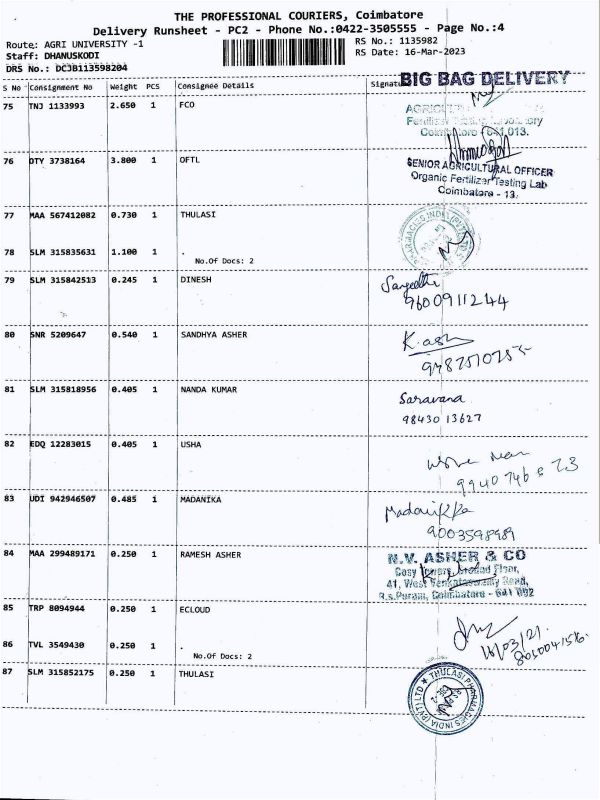 THE PROFESSIONAL COURIERS, Coimbatore
Delivery Runsheet - PC2 - Phone No.:0422-3505555 - Page No.:4
Route: AGRI UNIVERSITY -1 RS No.: 1135982
Staff: DHANUSKODI RS Date: 16-Mar-2023
DRS No.: DCJB113598204
BIG BAG DELIVERY
S No Consignment No Weight PCS Consignee Details Signat
75 TNJ 1133993 2.650 1 FCO
013.
76 DTY 3738164 3.800 1 OFTL
SENIOR AGRICULTURAL OFFICER
Organic Fertilizer Testing Lab
Coimbatore - 13.
77 MAA 567412082 0.730 1 THULASI
78 SLM 315835631 1.100 1 .
No.Of Docs: 2
79 SLM 315842513 0.245 1 DINESH
9600911244
80 SNR 5209647 0.540 1 SANDHYA ASHER
K. ash
81 SLM 315818956 0.405 1 NANDA KUMAR
Saravana
98430 13627
82 EDQ 12283015 0.405 1 USHA
83 UDI 942946507 0.485 1 MADANIKA
Madanikka
9003598989
84 MAA 299489171 0.250 1 RAMESH ASHER
N.V. ASHER & CO
Cosy Towers, Ground Floor,
41, West Venkataswamy Road,
R.s.Puram, Coimbatore - 641 002
85 TRP 8094944 0.250 1 ECLOUD
86 TVL 3549430 0.250 1 .
No.Of Docs: 2
87 SLM 315852175 0.250 1 THULASI
THULASI PHARMACIES INDIA (PVT) LTD